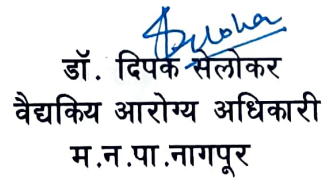 डॉ. दिपक सेलोकर
वैद्यकिय आरोग्य अधिकारी
म.न.पा.नागपूर